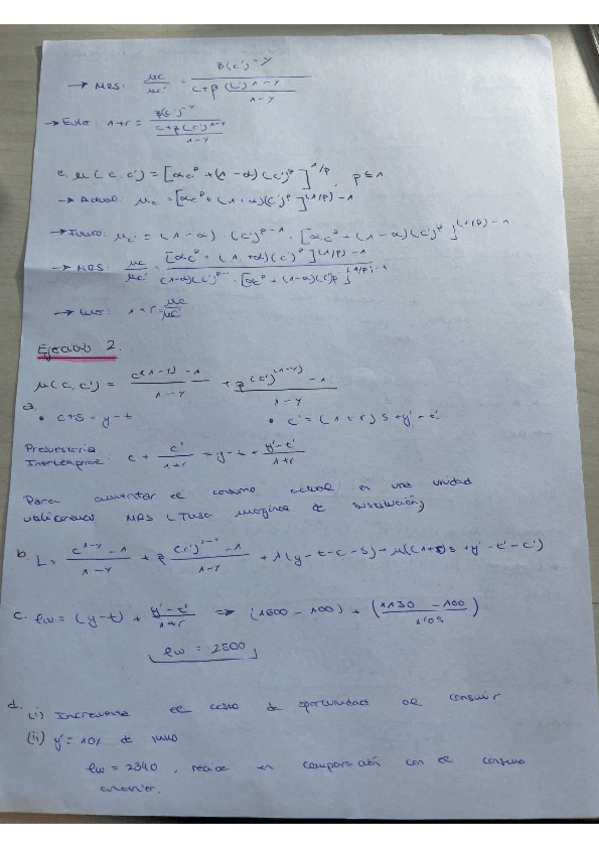 → MRS: μc/μc' = β(c')^-γ / (c+β(c')^1-γ / 1-γ)
→ Euler: 1+r = β(c')^-γ / (c+β(c')^1-γ / 1-γ)
e. μ(c,c') = [αc^ρ + (1-α)(c')^ρ]^1/ρ ρ≤1
→ Actual: μc = [αc^ρ + (1-α)(c')^ρ]^(1/ρ)-1
→ Futuro: μc' = (1-α)·(c')^ρ-1 · [αc^ρ + (1-α)(c')^ρ]^(1/ρ)-1
→ MRS: μc/μc' = [αc^ρ + (1+α)(c')^ρ]^(1/ρ)-1 / (1-α)(c')^ρ-1 · [αc^ρ + (1-α)(c')^ρ]^(1/ρ)-1
1+r = μc/μc'
Ejercicio 2.
μ(c,c') = c^(1-γ) - 1 / 1-γ + β (c')^(1-γ) - 1 / 1-γ
a.
• c+s = y-t • c' = (1+r)s + y'-t'
Presupuestaria
Intertemporal: c + c'/1+r = y-t + y'-t'/1+r
Para aumentar el consumo actual en una unidad
utilizamos MRS (Tasa marginal de sustitución)
b. L = c^1-γ - 1 / 1-γ + β (c')^1-γ - 1 / 1-γ + λ(y-t-c-s) + μ((1+r)s + y'-t'-c')
c. lw = (y-t) + y'-t'/1+r ⇒ (1600-100) + (1130-100 / 1'05)
lw = 2500
d.
(i) Incrementa el coste de oportunidad de consumir
(ii) y' = 10% de
lw = 2340, en comparación con el consumo
anterior.